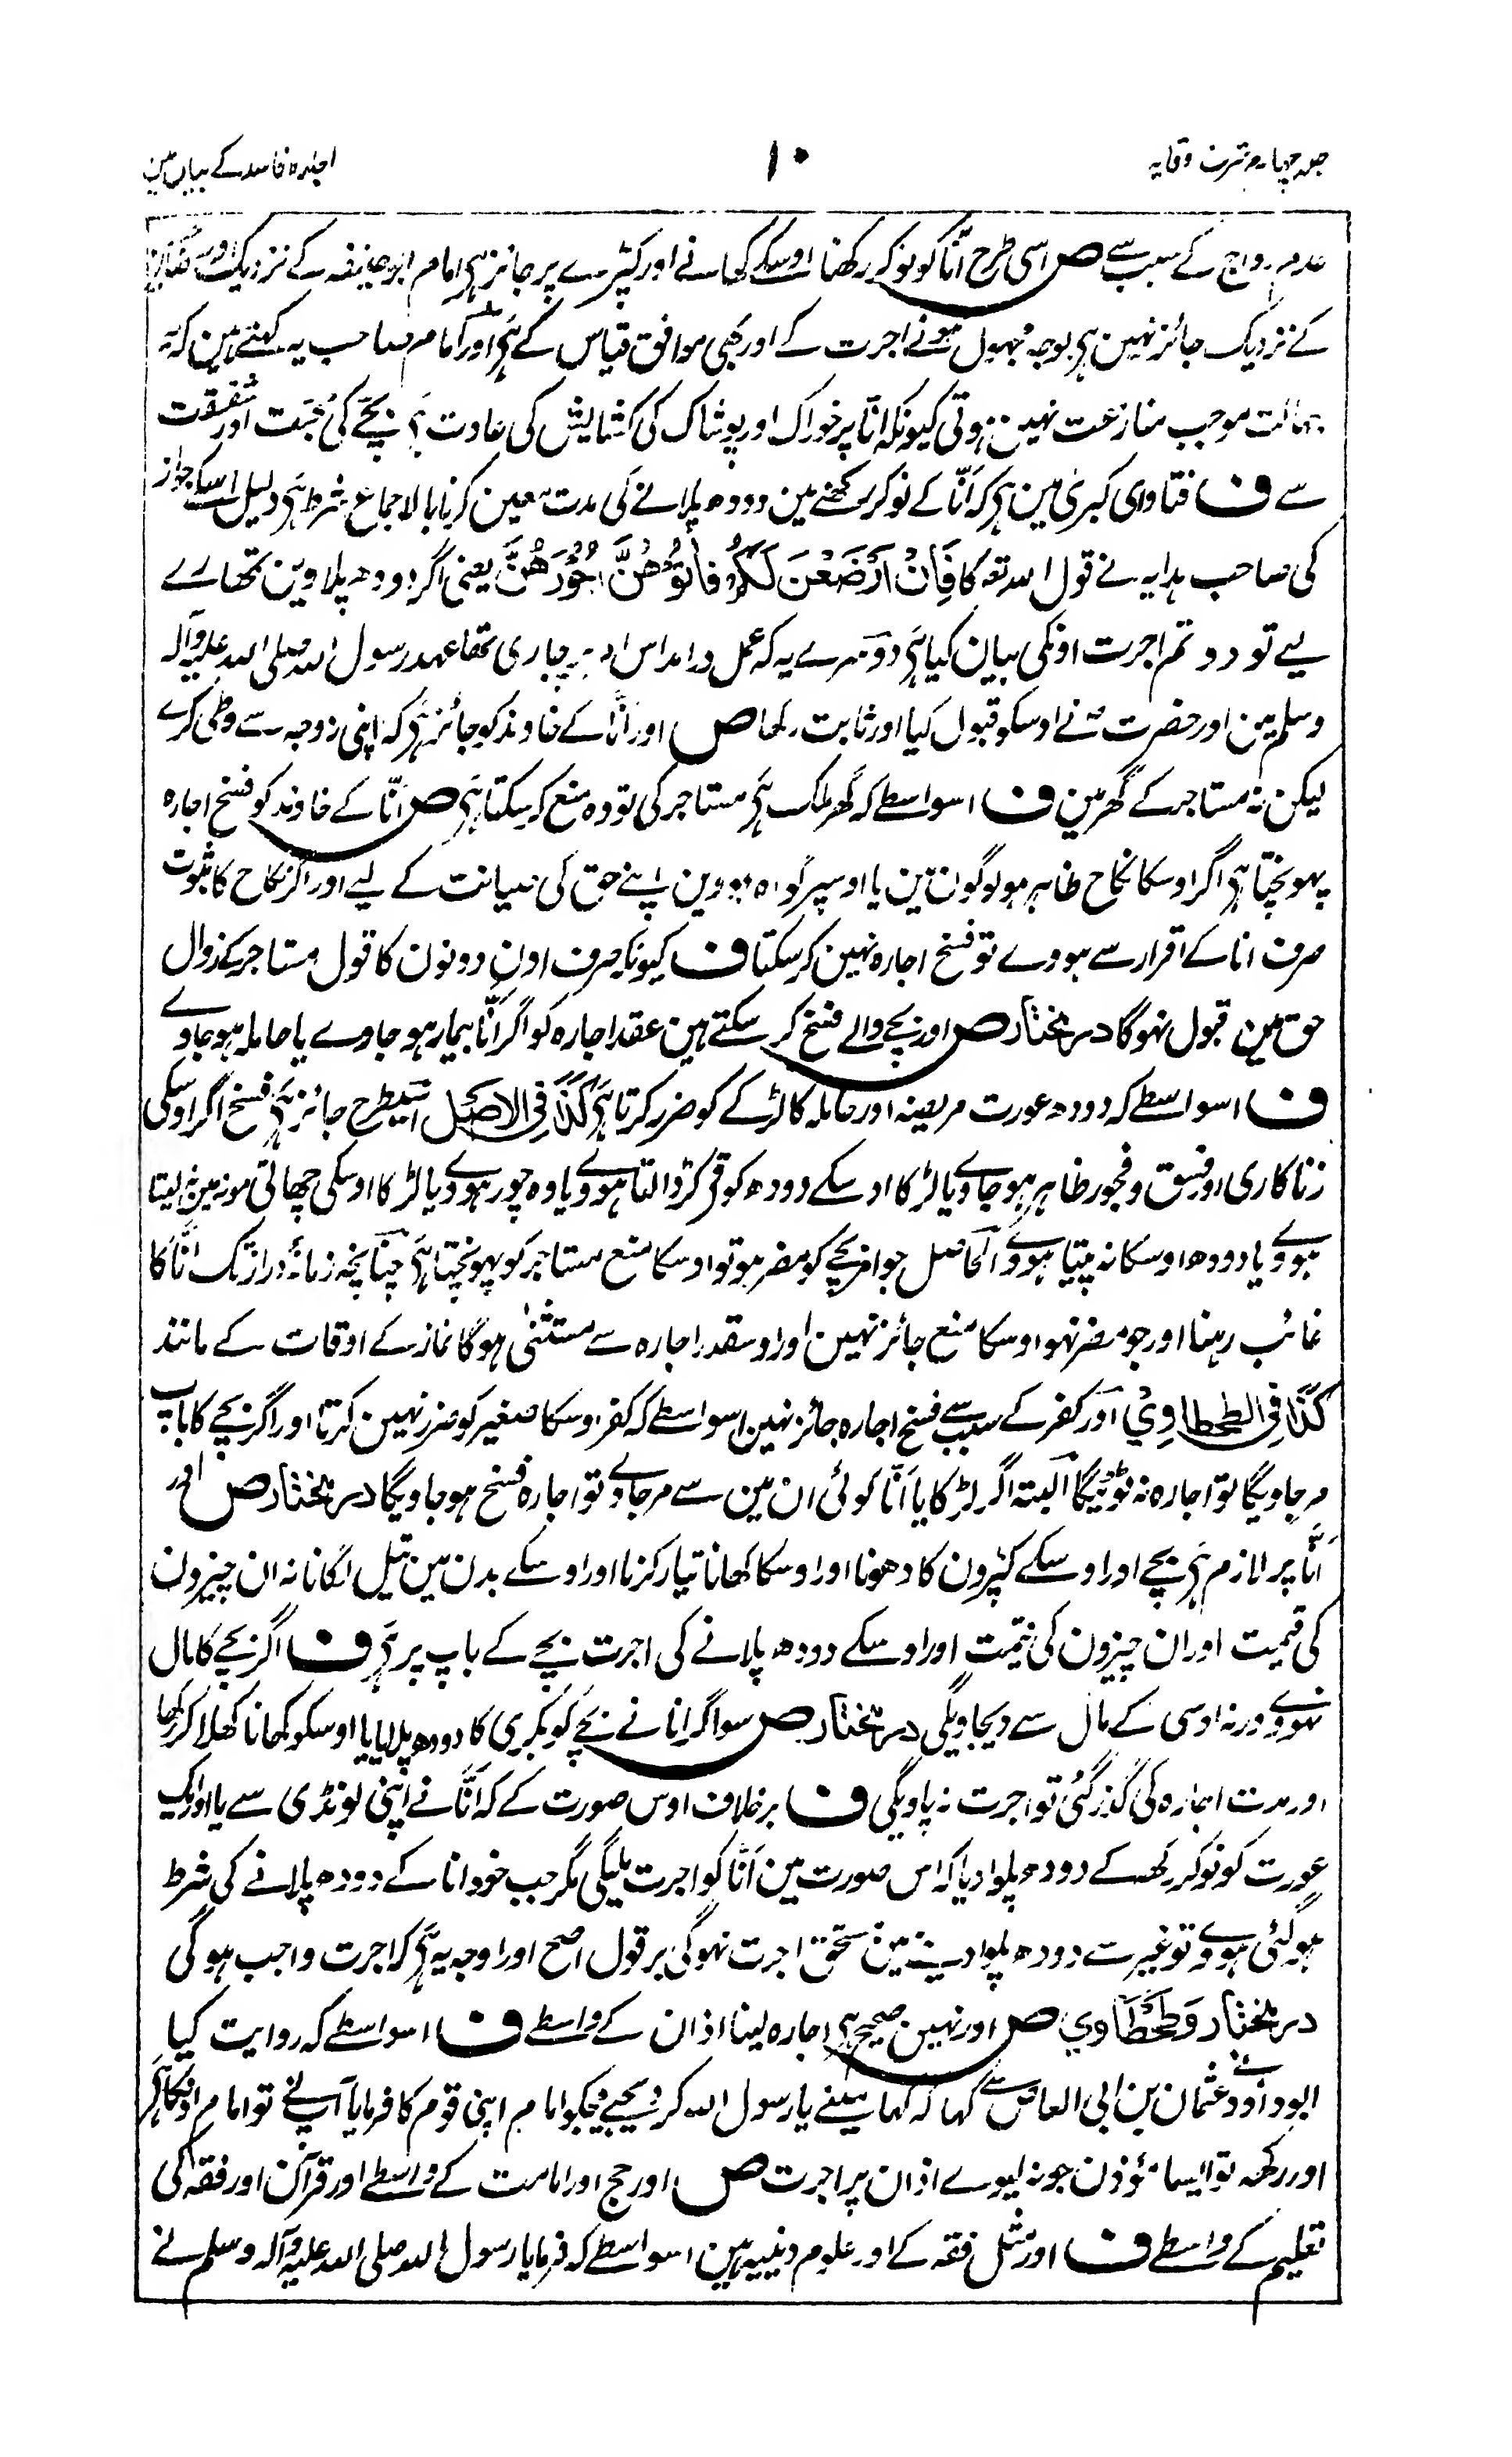 حصہ چہارم شرح وقایہ
۱۰
اجارہ فاسد کے بیان مین
عدم رواج کے سبب سے ص اسی طرح انّا کو نوکر رکھنا اوسکے کھانے اور کپڑے پر جائز ہی امام ابو حنیفہ کے نزدیک اور صاحبین
کے نزدیک جائز نہین ہی بوجہ مجہول ہونے اجرت کے اور یہی موافق قیاس کے ہی اور امام صاحب یہ کہتے ہین کہ یہ
جہالت موجب منازعت نہین ہوتی کیونکہ انّا پر خوراک اور پوشاک کی کشایش کی عادت ہی بچے کی محبت اور شفقت
سے ف فتاوی کبریٰ مین ہی کہ انّا کے نوکر رکھنے مین دودھ پلانے کی مدت معین کرنا بالاجماع شرط ہی دلیل اسکے جواز
کی صاحب ہدایہ نے قول اللہ تعہ کا فَاِنْ اَرْضَعْنَ لَكُمْ فَاٰتُوْهُنَّ اُجُوْرَهُنَّ یعنی اگر دودھ پلاوین تمھارے
لیے تو دو تم اجرت اونکی بیان کیا ہی دوسرے یہ کہ عمل درامد اس امر پر جاری تھا عہد رسول اللہ صلی اللہ علیہ وآلہ
وسلم مین اور حضرت نے اوسکو قبول کیا اور ثابت رکھا ص اور انّا کے خاوند کو جائز ہی کہ اپنی زوجہ سے وطی کرے
لیکن نہ مستاجر کے گھر مین ف اسواسطے کہ گھر ملک ہی مستاجر کی تو وہ منع کر سکتا ہی ص انّا کے خاوند کو فسخ اجارہ
پہونچتا ہی اگر اوسکا نکاح ظاہر ہو لوگون مین یا اوسپر گواہ ہووین اپنے حق کی صیانت کے لیے اور اگر نکاح کا ثبوت
صرف انا کے اقرار سے ہووے تو فسخ اجارہ نہین کر سکتا ف کیونکہ صرف اون دونون کا قول مستاجر کے زوال
حق مین قبول نہوگا در مختار ص اور بچے والے فسخ کر سکتے ہین عقد اجارہ کو اگر انّا بیمار ہو جاوے یا حاملہ ہو جاوے
ف اسواسطے کہ دودھ عورت مریضہ اور حاملہ کا لڑکے کو ضرر کرتا ہی کذا فی الاصل اسیطرح جائز ہی فسخ اگر اوسکی
زناکاری اور فسق و فجور ظاہر ہو جاوے یا لڑکا اوسکے دودھ کو قی کر ڈالتا ہووے یا وہ چور ہووے یا لڑکا اوسکی چھاتی مونہ مین نہ لیتا
ہووے یا دودھ اوسکا نہ پیتا ہووے الحاصل جو امر بچے کو مضر ہو تو اوسکا منع مستاجر کو پہونچتا ہی چنانچہ زمانۂ دراز تک انّا کا
غائب رہنا اور جو مضر نہو اوسکا منع جائز نہین اور اوسقدر اجارہ سے مستثنیٰ ہوگا نماز کے اوقات کے مانند
کذا فی الطحطاوی اور کفر کے سبب سے فسخ اجارہ جائز نہین اسواسطے کہ کفر اوسکا صغیر کو ضرر نہین کرتا اور اگر بچے کا باپ
مر جاویگا تو اجارہ نہ ٹوٹیگا البتہ اگر لڑکا یا انّا کوئی ان مین سے مر جاوے تو اجارہ فسخ ہو جاویگا در مختار ص اور
انّا پر لازم ہی بچے اور اوسکے کپڑون کا دھونا اور اوسکا کھانا تیار کرنا اور اوسکے بدن مین تیل لگانا نہ ان چیزون
کی قیمت اور ان چیزون کی قیمت اور اوسکے دودھ پلانے کی اجرت بچے کے باپ پر ہی ف اگر بچے کا مال
نہووے ورنہ اوسی کے مال سے دیجاویگی در مختار ص سو اگر انا نے بچے کو بکری کا دودھ پلایا یا اوسکو کھانا کھلا کر رکھا
اور مدت اجارہ کی گذر گئی تو اجرت نہ پاویگی ف برخلاف اوس صورت کے کہ انّا نے اپنی لونڈی سے یا اور ایک
عورت کو نوکر رکھکے دودھ پلوا دیا کہ اس صورت مین انّا کو اجرت ملیگی مگر جب خود انا کے دودھ پلانے کی شرط
ہو گئی ہووے تو غیر سے دودھ پلوا دینے مین مستحق اجرت نہوگی بر قول اصح اور اوجہ یہ ہی کہ اجرت واجب ہوگی
در مختار و طحطاوی ص اور نہین صحیح ہی اجارہ لینا اذان کے واسطے ف اسواسطے کہ روایت کیا
ابوداؤد نے عثمان بن ابی العاص سے کہا کہ کہا مینے یا رسول اللہ کر دیجیے مجکو امام اپنی قوم کا فرمایا آپنے تو امام اونکا ہی
اور رکھہ تو ایسا مؤذن جو نہ لیوے اذان پر اجرت ص اور حج اور امامت کے واسطے اور قرآن اور فقہ کی
تعلیم کے واسطے ف اور مثل فقہ کے اور علوم دینیہ ہین اسواسطے کہ فرمایا رسول اللہ صلی اللہ علیہ وآلہ وسلم نے